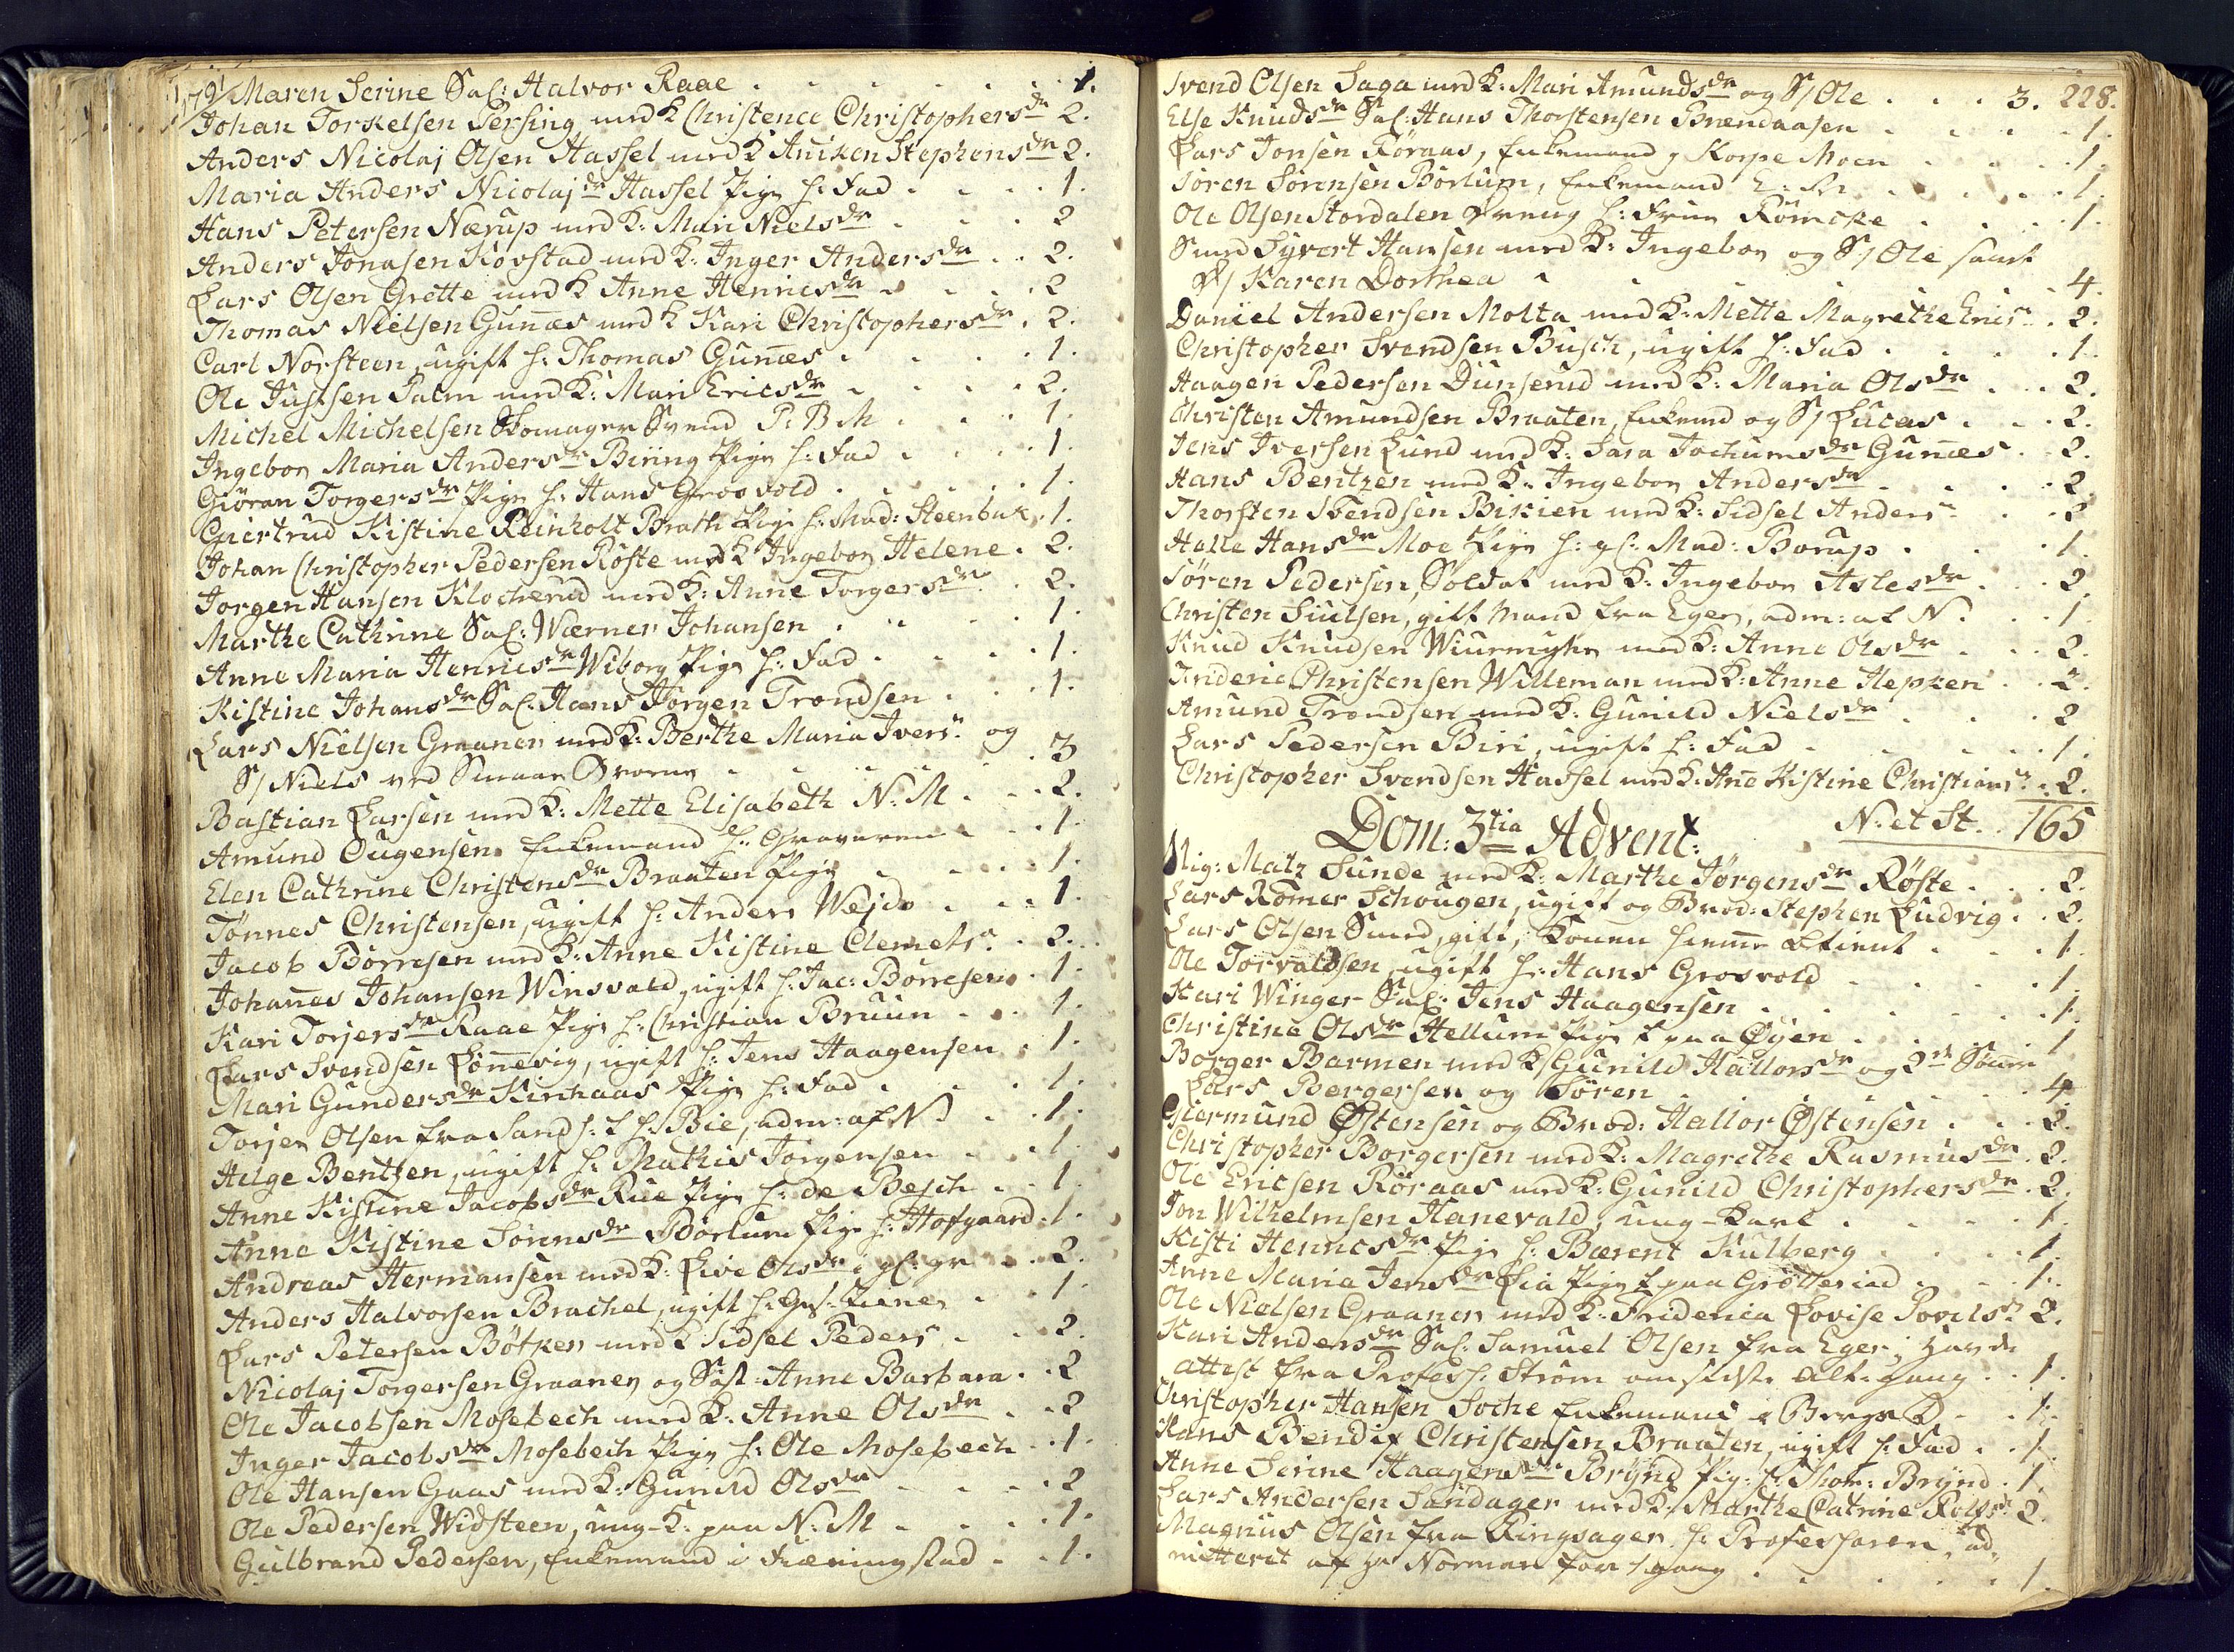 1791 Maren Serine Sal: Halvor Raae . . . 1.
Johan Torkelsen Persing med K Christence Christophersdr 2.
Anders Nicolaj Olsen Hassel med K Aniken Stephensdr 2.
Maria Anders Nicolajdr Hassel Pige h: Fad . . . 1.
Hans Petersen Nærup med K: Mari Nielsdr . . . 2
Anders Jonasen Kovstad med K: Inger Andersdr . . 2.
Lars Olsen Grette med K Anne Henricsdr . . . 2
Thomas Nielsen Guñæs med K Kari Christophersdr . 2.
Carl Norsteen, ugift h: Thomas Guñæs . . . 1.
Ole Justsen Palm med K: Mari Ericsdr . . . 2.
Michel Michelsen Skomager Svend P. B M . . . 1.
Ingebor Maria Andersdr Biring Pige h: Fad . . . 1.
Giøran Torgersdr Pige h: Hans Grosvold . . . 1.
Giertrud Kistine Reinholt Brath Pige h: Mad: Steenbuk . 1.
Johan Christopher Pedersen Røste med K Ingebor Helene . 2.
Jorgen Hansen Klocherud med K: Anne Torgersdr . 2.
Marthe Cathrine Sal: Wærner Johansen . . . 1.
Anne Maria Henricsdr Wiborg Pige h: Fad . . . 1.
Kistine Johansdr Sal. Hans Jørgen Trondsen . . . 1.
Lars Nielsen Graanen med K: Berthe Maria Ivers: og
S/ Niels ved Smaae . . . 3
Bastian Larsen med K: Mette Elisabeth N: M . . . 2.
Amund Ougensen Enkemand h: Graveren . . . 1.
Elen Cathrine Christensdr Braaten Pige . . . 1.
Tønnes Christensen, ugift h: Anders Wejde . . . 1.
Jacob Børresen med K: Anne Kistine Clemets: . 2.
Johañes Johansen Winsvald, ugift h: Jac: Børresen . 1.
Kari Torjersdr Raae Pige h: Christian Bruun . . . 1.
Lars Svendsen Løñevig, ugift h: Jens Haagensen . 1.
Mari Gundersdr Kirkaas Pige h: Fad . . . 1.
Torjer Olsen fra Sands: h: Bie, adm: af N . . . 1.
Helge Bentzen, ugift h: Mathis Jörgensen . . . 1.
Anne Kistine Jacobsdr Rue Pige h: de Besch . . . 1.
Anne Kistine Sörensdr Børlum Pige h: Hofgaard . 1.
Andreas Hermansen med K: Live Olsdr . . . 2.
Anders Halvorsen Brachel, ugift h: . . . 1.
Lars Petersen Bøtker med K Sidsel Peders: . . . 2.
Nicolaj Torgersen Graanen og Søst: Anne Barbara . 2
Ole Jacobsen Mosebech med K: Anne Olsdr . . 2
Inger Jacobsdr Mosebech Pige h: Ole Mosebech . 1.
Ole Hansen Gaas med K: Gunild Olsdr . . . 2
Ole Pedersen Widsteen, ung-K: paa N: M . . . 1.
Gulbrand Pedersen, Enkemand i . . . 1.
Svend Olsen Saga med K: Mari Amundsdr og S/ Ole . . . 3. 228.
Else Knudsdr Sal: Hans Thorstensen Brændaasen . . . 1.
Lars Jonsen Röraas, Enkemand Korpe Moen . . . 1.
Sören Sörensen Børlum, Enkemand . . . 1.
Ole Olsen Stordalen dreng h: Frue Römcke . . . 1.
Smed Syvert Hansen med K: Ingebor og S/ Ole samt
D/ Karen Dorthea . . . 4.
Daniel Andersen Molta med K: Mette Magrethe Erics: . 2.
Christopher Svendsen Busch, ugift h: Fad . . . 1.
Haagen Pedersen Dunserud med K: Maria Olsdr . . . 2.
Christen Amundsen Braaten, Enkemd og S/ Lucas . . . 2.
Jens Iversen Lund med K: Sara Jochumsdr Guñæs . 2.
Hans Bentzen med K: Ingebor Andersdr . . . 2.
Thorsten Svendsen Bikien med K: Sidsel Anders: . . 2
Helle Hansdr Moe Pige h: gl: Mad: Borup . . . 1.
Sören Pedersen, Soldat med K: Ingebor Aslesdr . . 2.
Christen Siulsen, gift Mand fra Eger, adm: af N: . . 1.
Knud Knudsen Wiurmyhr med K: Anne Olsdr . . . 2.
Frideric Christensen Willeman med K: Anne Hepken . 2.
Amund Trondsen med K: Gunild Nielsdr . . . 2
Lars Pedersen Biri, ugift h: Fad . . . 1.
Christopher Svendsen Hassel med K: Añe Kistine Christians: . 2.
N: et St. 165
Dom: 3tia Advent:
Sig: Matz Sunde med K: Marthe Jørgensdr Røste . . . 2.
Lars Römer Schougen, ugift og Brod: Stephen Ludvig . . 2.
Lars Olsen Smed, gift, Konen hieme betient . . . 1.
Ole Torvaldsen, ugift h: Hans Grosvold . . . 1.
Kari Winger Sal: Jens Haagensen . . . 1.
Christine Olsdr Hellum Pige paa Øyen . . . 1
Borger Barmen med K/ Gunild Hallorsdr og 2de Söner
Lars Bergersen og Sören . . . 4
Giermund Østensen og Brod: Hallor Østensen . . . 2.
Christopher Borgersen med K: Magrethe Rasmusdr . 2.
Ole Ericsen Röraas med K: Gunild Christophersdr . 2.
Jon Wilhelmsen Hanevald, ung-Karl . . . 1.
Kisti Henricsdr Pige h: Bærent Kulberg . . . 1.
Anne Maria Jensdr Lia Pige paa Grötterud . . . 1.
Ole Nielsen Graanen med K: Friderica Lovise Povels: 2.
Kari Andersdr Sal: Samuel Olsen fra Eger, havde
attest fra Profess: Strøm om sidste Alt: gang . . 1.
Christopher Hansen Soche Enkemand . . . 1.
Hans Bendix Christensen Braaten, ugift h: Fad . . 1.
Anne Serine Haagensdr Brÿnd Pig: h: Thom: Brÿnd . 1.
Lars Andersen Sandager med K: Marthe Catrine Rolfs: 2.
Magnus Olsen fra Ringsager h: Professoren, ad-
mitteret af Hr Norman for 1 gang . . . 1.